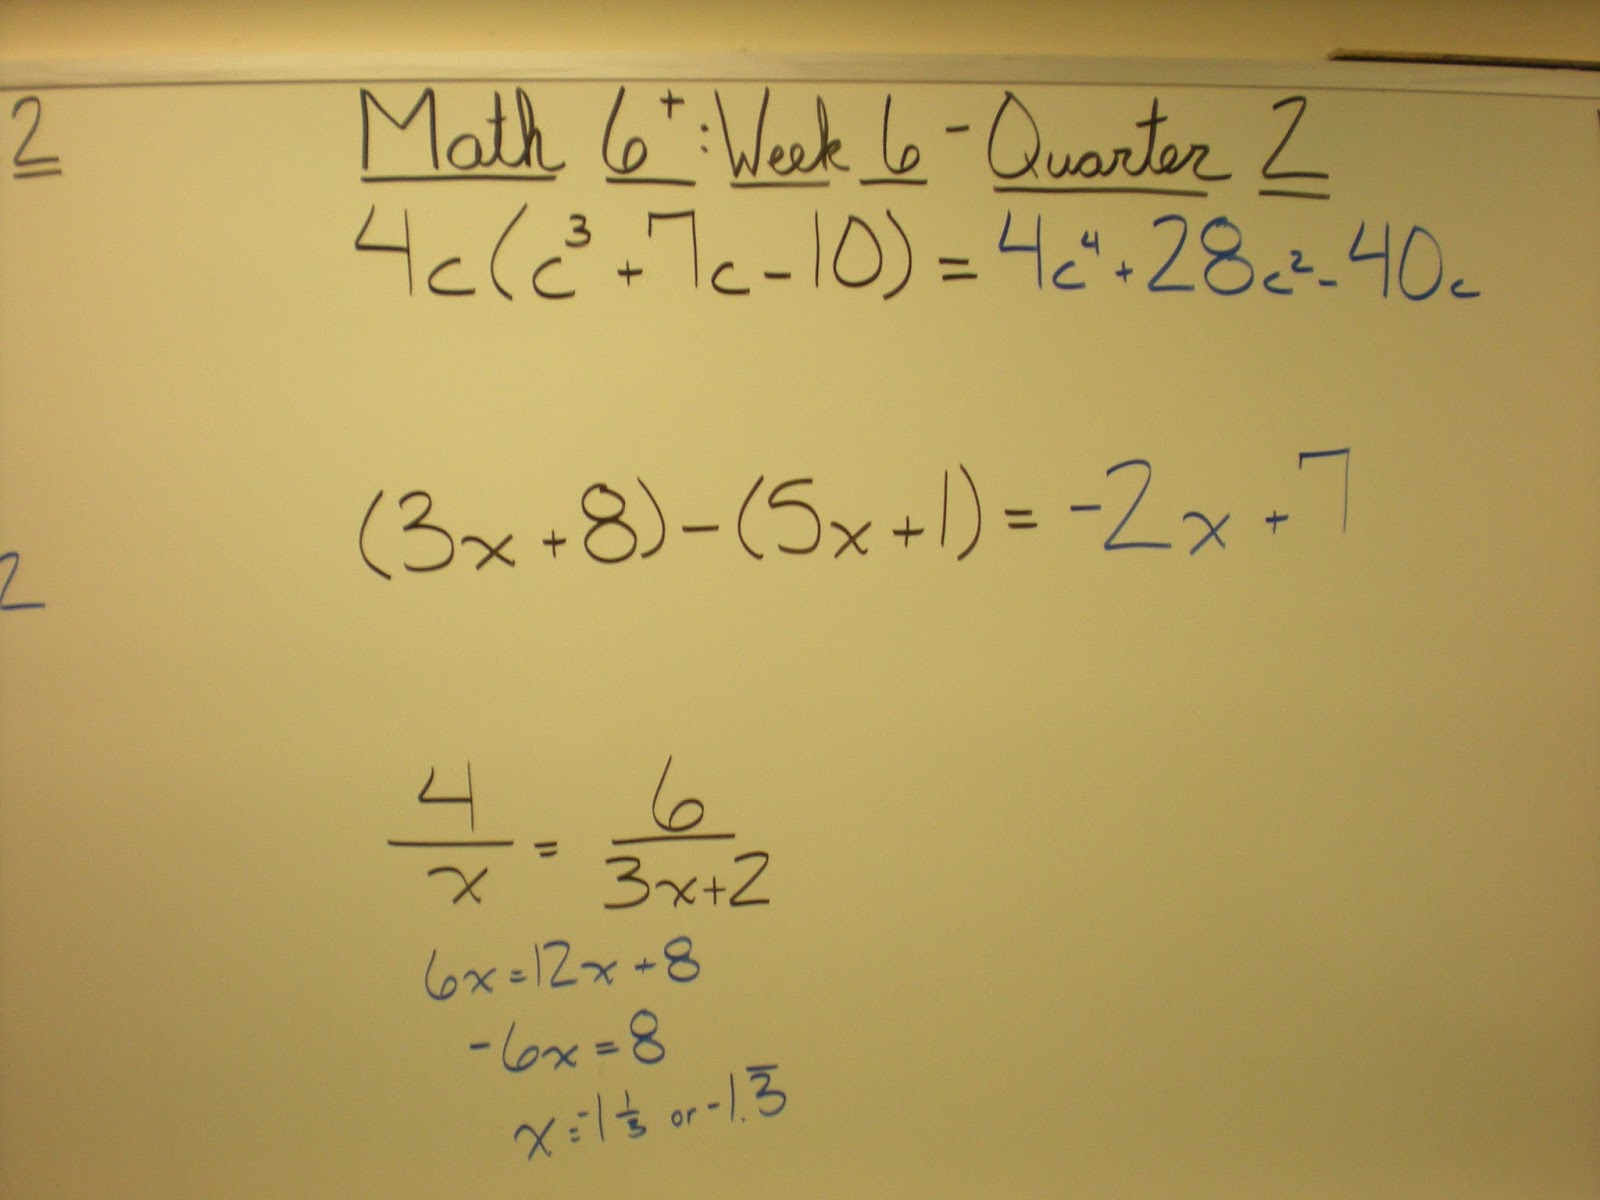 2
Math 6⁺: Week 6 - Quarter 2
4c(c³ + 7c - 10) = 4c⁴ + 28c² - 40c
(3x + 8) - (5x + 1) = -2x + 7
2
4/x = 6/(3x+2)
6x = 12x + 8
-6x = 8
x = -1 1/3 or -1.3̅